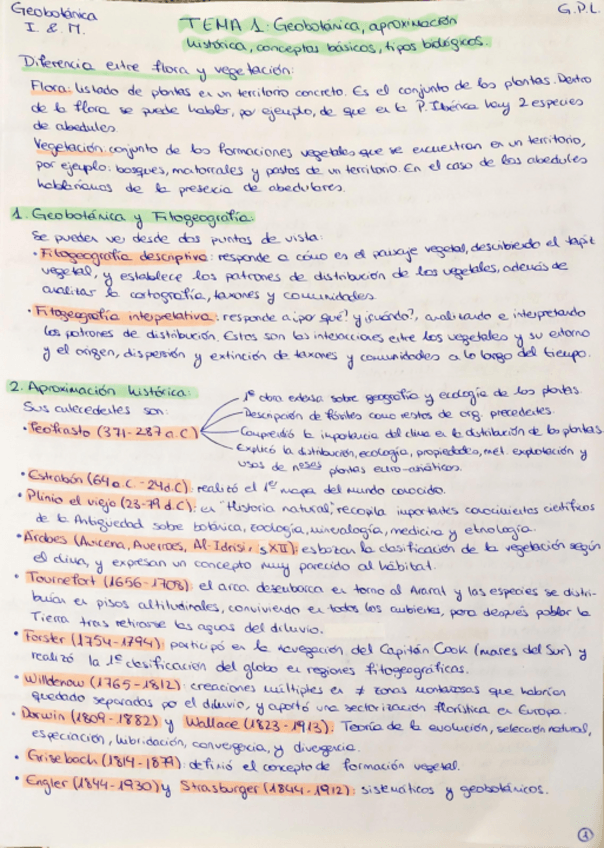 Geobotánica
I. & M.
G.P.L.
TEMA 1: Geobotánica, aproximación
histórica, conceptos básicos, tipos biológicos.
Diferencia entre flora y vegetación:
Flora: listado de plantas en un territorio concreto. Es el conjunto de las plantas. Dentro
de la flora se puede hablar, por ejemplo, de que en la P. Ibérica hay 2 especies
de abedules.
Vegetación: conjunto de las formaciones vegetales que se encuentran en un territorio,
por ejemplo: bosques, matorrales y pastos de un territorio. En el caso de los abedules
hablaríamos de la presencia de abedulares.
1. Geobotánica y Fitogeografía:
Se pueden ver desde dos puntos de vista:
• Fitogeografía descriptiva: responde a cómo es el paisaje vegetal, describiendo el tapiz
vegetal, y establece los patrones de distribución de los vegetales, además de
analizar la cartografía, taxones y comunidades.
• Fitogeografía interpretativa: responde a ¿por qué? y ¿cuándo?, analizando e interpretando
los patrones de distribución. Estos son las interacciones entre los vegetales y su entorno
y el origen, dispersión y extinción de taxones y comunidades a lo largo del tiempo.
2. Aproximación histórica:
Sus antecedentes son:
• Teofrasto (371-287 a.C)
1ª obra extensa sobre geografía y ecología de las plantas.
Descripción de fósiles como restos de org. precedentes.
Comprendió la importancia del clima en la distribución de las plantas
Explicó la distribución, ecología, propiedades, met. explotación y
usos de plantas euro-asiáticas.
• Estrabón (64 a.C. - 24 d.C): realizó el 1er mapa del mundo conocido.
• Plinio el viejo (23-79 d.C): en "Historia natural", recopila importantes conocimientos científicos
de la Antigüedad sobre botánica, zoología, mineralogía, medicina y etnología.
• Árabes (Avicena, Averroes, Al-Idrisi, s XII): esbozan la clasificación de la vegetación según
el clima, y expresan un concepto muy parecido al hábitat.
• Tournefort (1656-1708): el arca desembarca en torno al Ararat y las especies se distri-
buían en pisos altitudinales, conviviendo en todos los ambientes, para después poblar la
Tierra tras retirarse las aguas del diluvio.
• Forster (1754-1794): participó en la navegación del Capitán Cook (mares del Sur) y
realizó la 1ª clasificación del globo en regiones fitogeográficas.
• Willdenow (1765-1812): creaciones múltiples en ≠ zonas montañosas que habrían
quedado separadas por el diluvio, y aportó una sectorización florística en Europa.
• Darwin (1809-1882) y Wallace (1823-1913): Teoría de la evolución, selección natural,
especiación, hibridación, convergencia, y divergencia.
• Grisebach (1814-1879): definió el concepto de formación vegetal.
• Engler (1844-1930) y Strasburger (1844-1912): sistemáticos y geobotánicos.
1